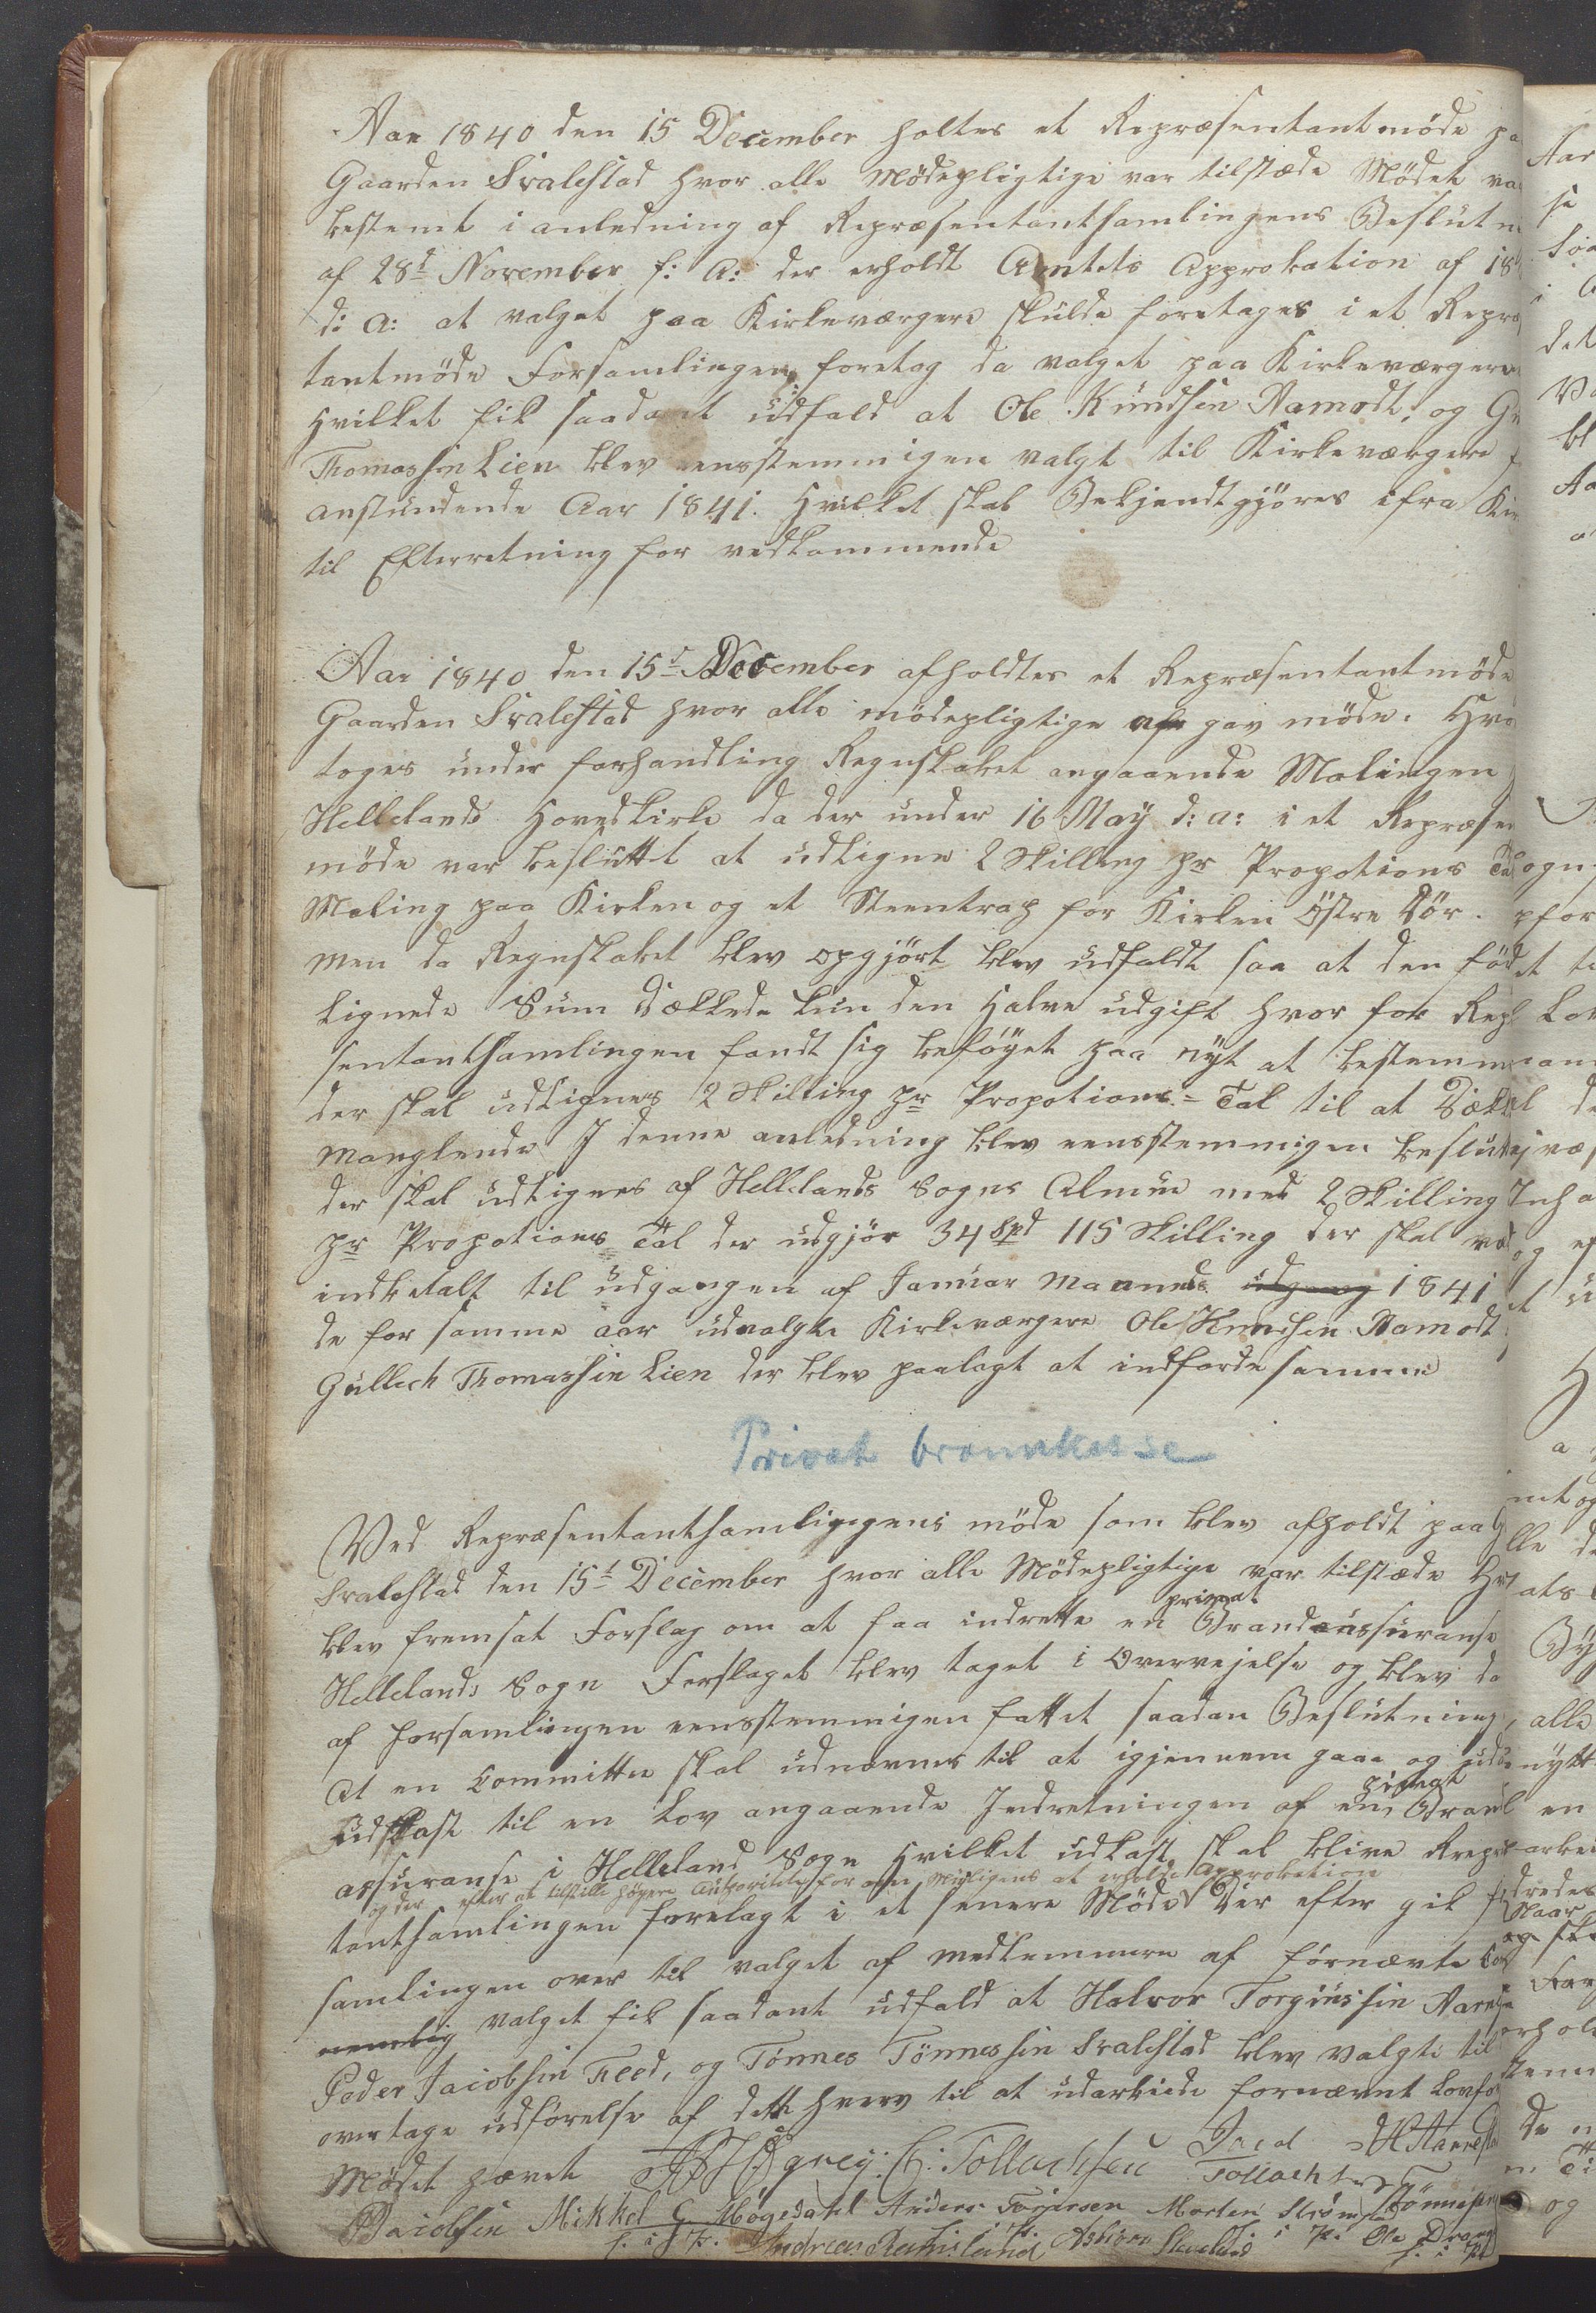 Aar 1840 den 15 December holtes et Repræsentantmöde pa
Gaarden Svalestad hvor alle Mödepligtige var tilstæde Mödet va
bestemt i anledning af Repræsentantsamlingens Beslutn
af 28d November f: A: der erholdt Amtets Approbation af 18
d: A: at valget paa Kirkeværgere skulde foretages i et Repræ
tantmöde Forsamlingen foretog da valget paa Kirkeværgere
Hvilket fik saadant udfald at Ole Knudsen Aamodt, og Gu
Thomassen Lien blev eensstemmigen valgt til Kirkeværgere f
anstundende Aar 1841. Hvilket skal Bekjendtgjöres ifra Kir
til Efterretning for vedkommende
Aar 1840 den 15d December afholdtes et Repræsentantmöde
Gaarden Svalestad hvor alle mödepligtige gav möde. Hvo
toges under forhandling Regnskabet angaaende Malingen
Hellelands Hovedkirke da der under 16 May d: a: i et Repræsen
möde var besluttet at udligne 2 Skilling pr Propotions Tal
Maling paa Kirken og et Steentrap for Kirken Östre Dör.
Men da Regnskabet blev opgjört blev udfaldt saa at den
lignede Sum Dækkede kun den Halve udgift hvor for Rep
sentantsamlingen fandt sig beföyet paa nyt at bestemme
der skal udlignes 2 Skilling pr Propotions=Tal til at Dække
Manglende I denne anledning blev eensstemmigen beslutte
der skal udlignes af Hellelands Sogns Almue med 2 Skilling
pr Propotions Tal der udgjör 34 Spd 115 Skilling der skal væ
indbetalt til udgangen af Januar Maaneds udgang 1841
de for samme aar udvalgte Kirkeværgere Ole Knudsen Aamodt
Gullech Thomassen Lien der blev paalagt at indfordre samme
Privat brannkasse
Ved Repræsentantsamlingens möde som blev afholdt paa G
Svalestad den 15d December hvor alle Mödepligtige var tilstæde Hv
blev fremsat Forslag om at faa indrette en privat Brandassuranse
Hellelands Sogn Forslaget blev taget i Overvejelse og blev da
af forsamlingen eensstemmigen fattet saadan Beslutning
At en Committee skal udnævnes til at igjennem gaae og
Udkast til en Lov angaaende Indretningen af en privat Brand
assuranse i Helleland Sogn Hvilket udkast skal blive Repræ
og der efter at tilstille höyere Autoritet for om Muligens at erholde Approbation
tantsamlingen forelagt i et senere Möde Der efter gik
samlingen over til valget af medlemmere af fornævnte Co
nemlig valget fik saadant udfald at Halvor Torginssen Aar
Peder Jacobsen Eeed, og Tönnes Tönnessen Svalestad blev valgte til
overtage udförelse af dette hverv til at udarbeide fornævnt Lovfor
Mödet hævet
Ch: Tollachsen
Tollachsen
Jacobsen Mikkel G. Mögedahl Anders Torjersen Morten Strömstad Tönnesen
f. i P. Andreas Ramsland i P. Asbiörn Slevelend i P. Ole Drang